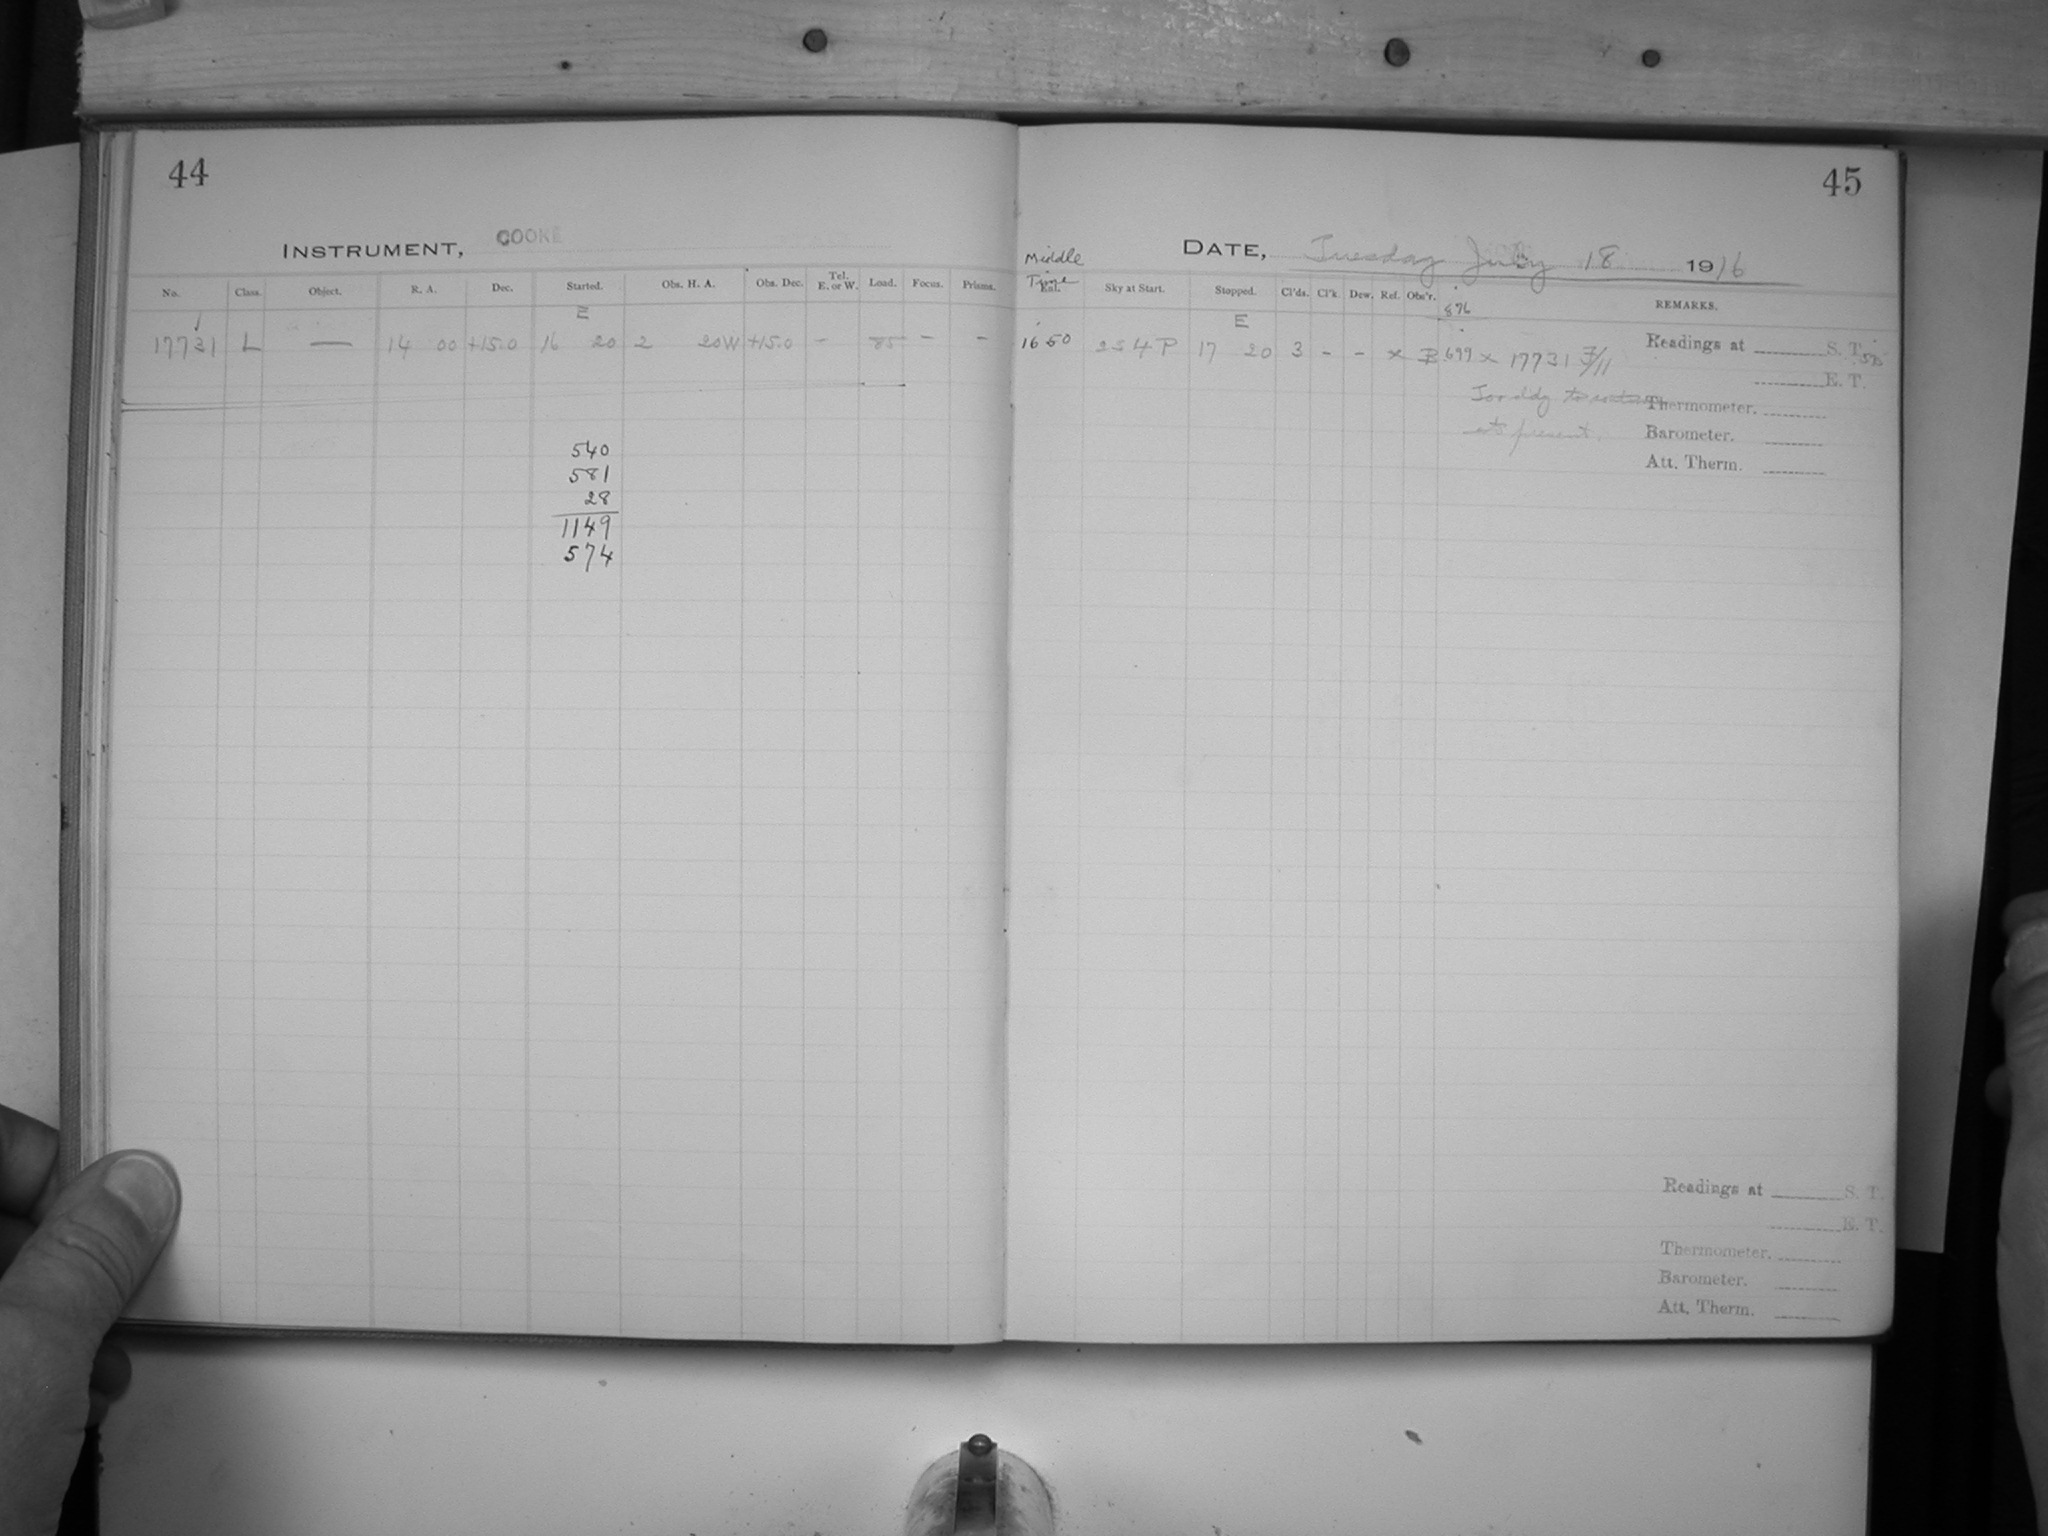 44
45
INSTRUMENT, COOKE
DATE, Tuesday July 18 1916
No. Class. Object. R. A. Dec. Started. Obs. H. A. Obs. Dec. Tel. E. or W. Load. Focus. Prisms.
Middle Time
Exl. Sky at Start. Stopped. Cl'ds. Cl'k. Dew. Ref. Obs'r. REMARKS.
876
E
E
17731 L — 14 00 +15.0 16 20 2 20W +15.0 - 85 - -
1650 254P 17 20 3 - - x B 699 x 17731 F/11
Readings at S. T.
E. T.
Too ddg
Thermometer.
at present.
Barometer.
Att. Therm.
540
581
28
1149
574
Readings at S. T.
E. T.
Thermometer.
Barometer.
Att. Therm.